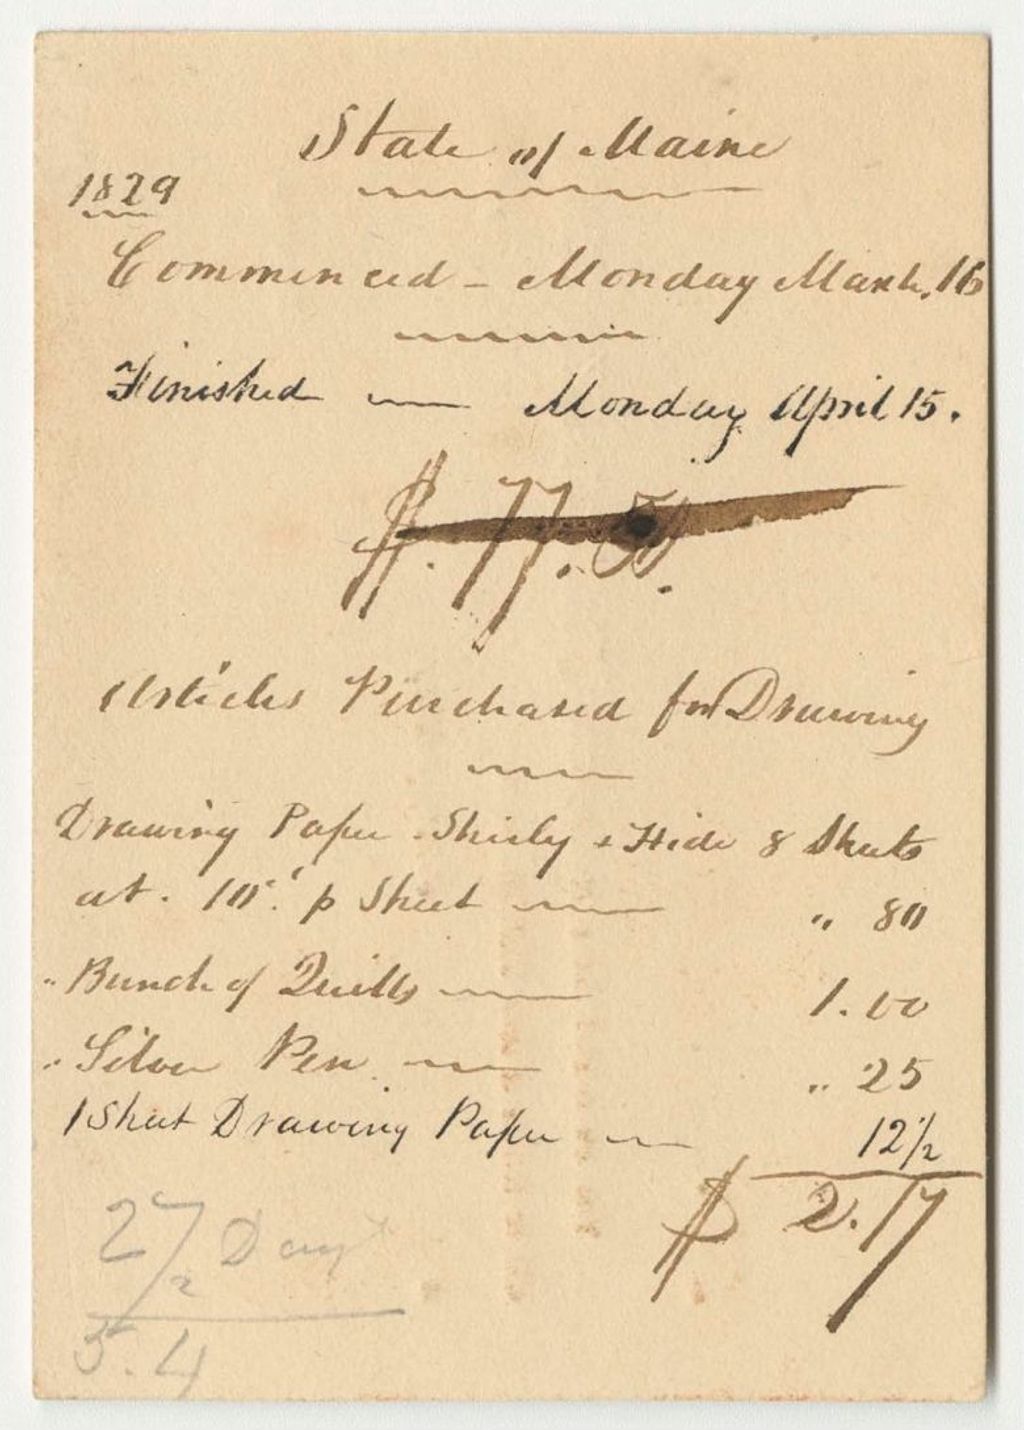 State of Maine
1829
Commenced - Monday March. 16
Finished — Monday April 15.
$. 77. 50.
Articles Purchased for Drawing
Drawing Paper - Shirly & Hide 8 Sheets
at. 10.' p Sheet — " 80
" Bunch of Quills — 1.00
" Silver Pen. — " 25
1 Sheet Drawing Paper — 12 1/2
$ 2.17
27 Day
2
5.4